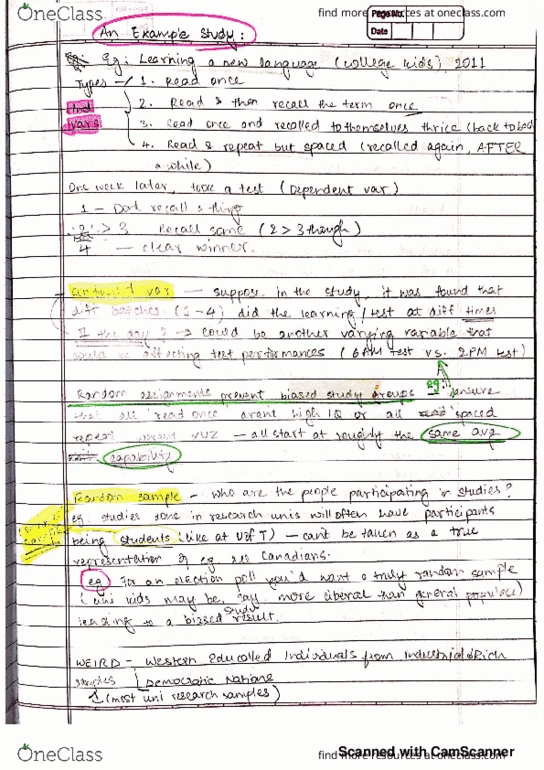 OneClass
find more resources at oneclass.com
Page No.
Date
An Example Study:
Eg: Learning a new language (college kids), 2011
Types 1. Read once
Ind 2. Read & then recall the term once
vars 3. Read once and recalled to themselves thrice (back to back
4. Read & repeat but spaced (recalled again, AFTER
a while)
One week later, took a test (Dependent var)
1 - Don't recall a thing
2 > 3 Recall some (2 > 3 though)
4 - clear winner.
var - suppose, in the study, it was found that
diff batches (1-4) did the learning / test at diff times
the day ? → could be another varying variable that
could be affecting test performances (6AM test vs. 2PM test)
Random assignments prevent biased study groups - eg: ensure
that all read once arent high IQ or all spaced
repeat - all start at roughly the same avg
capability
Random sample - who are the people participating in studies?
eg. studies done in research unis will often have participants
being students (like at UofT) - can't be taken as a true
representation of eg. all Canadians.
eg For an election poll you'd want a truly random sample
(uni kids may be, say, more liberal than general populace)
leading to a biased study result.
WEIRD - Western Educated Individuals from Industrial & Rich
samples Democratic Nations
(most uni research samples)
OneClass
find more resources at oneclass.com
Scanned with CamScanner